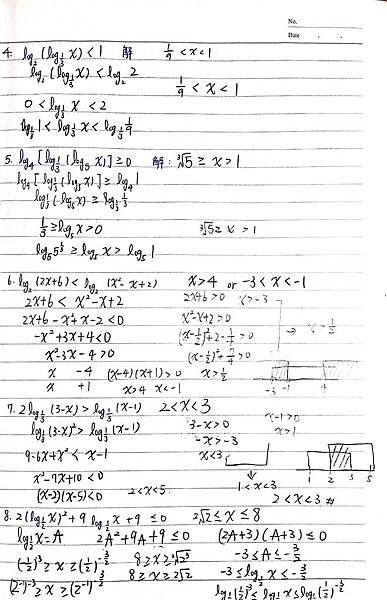 No.
Date
4. log₂(log_{1/3} x) < 1 解 1/9 < x < 1
log₂(log_{1/3} x) < log₂ 2
1/9 < x < 1
0 < log_{1/3} x < 2
log_{1/3} 1 < log_{1/3} x < log_{1/3} 1/9
5. log₄[log_{1/3}(log₅ x)] ≥ 0 解: ³√5 ≥ x > 1
log₄[log_{1/3}(log₅ x)] ≥ log₄ 1
log_{1/3}(log₅ x) ≥ log_{1/3} 1/3
1/3 ≥ log₅ x > 0 ³√5 ≥ x > 1
log₅ 5^{1/3} ≥ log₅ x > log₅ 1
6. log₂(2x+6) < log₂(x²-x+2) x > 4 or -3 < x < -1
2x+6 < x²-x+2 2x+6 > 0 x > -3
2x+6-x²+x-2 < 0 x²-x+2 > 0
-x²+3x+4 < 0 (x-1/2)²+2-1/4 > 0 → x > 1/2
x²-3x-4 > 0 (x-1/2)²+7/4 > 0
x -4 (x-4)(x+1) > 0 x > 1/2
x +1 x > 4 x < -1 -3 -1 4
7. 2log_{1/3}(3-x) > log_{1/3}(x-1) 2 < x < 3
log_{1/3}(3-x)² > log_{1/3}(x-1) 3-x > 0 x-1 > 0
-x > -3 x > 1
9-6x+x² < x-1 x < 3
x²-7x+10 < 0 1 < x < 3 1 2 3 5
(x-2)(x-5) < 0 2 < x < 5 2 < x < 3 #
8. 2(log_{1/2} x)² + 9 log_{1/2} x + 9 ≤ 0 2√2 ≤ x ≤ 8
log_{1/2} x = A 2A²+9A+9 ≤ 0 (2A+3)(A+3) ≤ 0
(1/2)^{-3} ≥ x ≥ (1/2)^{-3/2} 8 ≥ x ≥ 2√2 -3 ≤ A ≤ -3/2
8 ≥ x ≥ 2√2 -3 ≤ log_{1/2} x ≤ -3/2
(2^{-1})^{-3} ≥ x ≥ (2^{-1})^{-3/2} log_{1/2}(1/2)^{-3} ≤ log_{1/2} x ≤ log_{1/2}(1/2)^{-3/2}